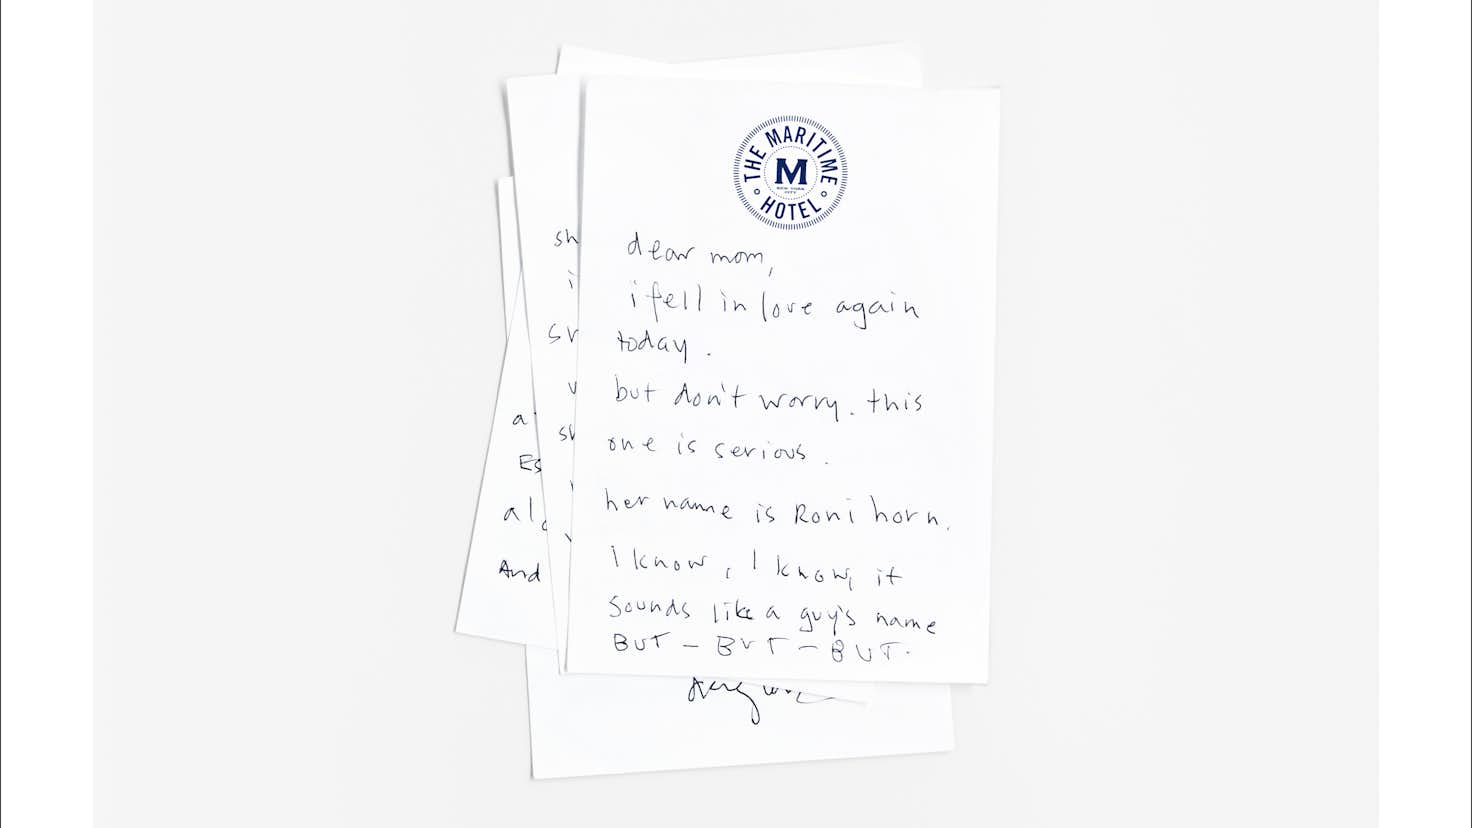 THE MARITIME HOTEL
M
NEW YORK
CITY
dear mom,
i fell in love again
today.
but don't worry. this
one is serious.
her name is Roni horn.
I know, I know, it
sounds like a guy's name
BUT – BUT – BUT.
sh
i
sh
a
Es
And